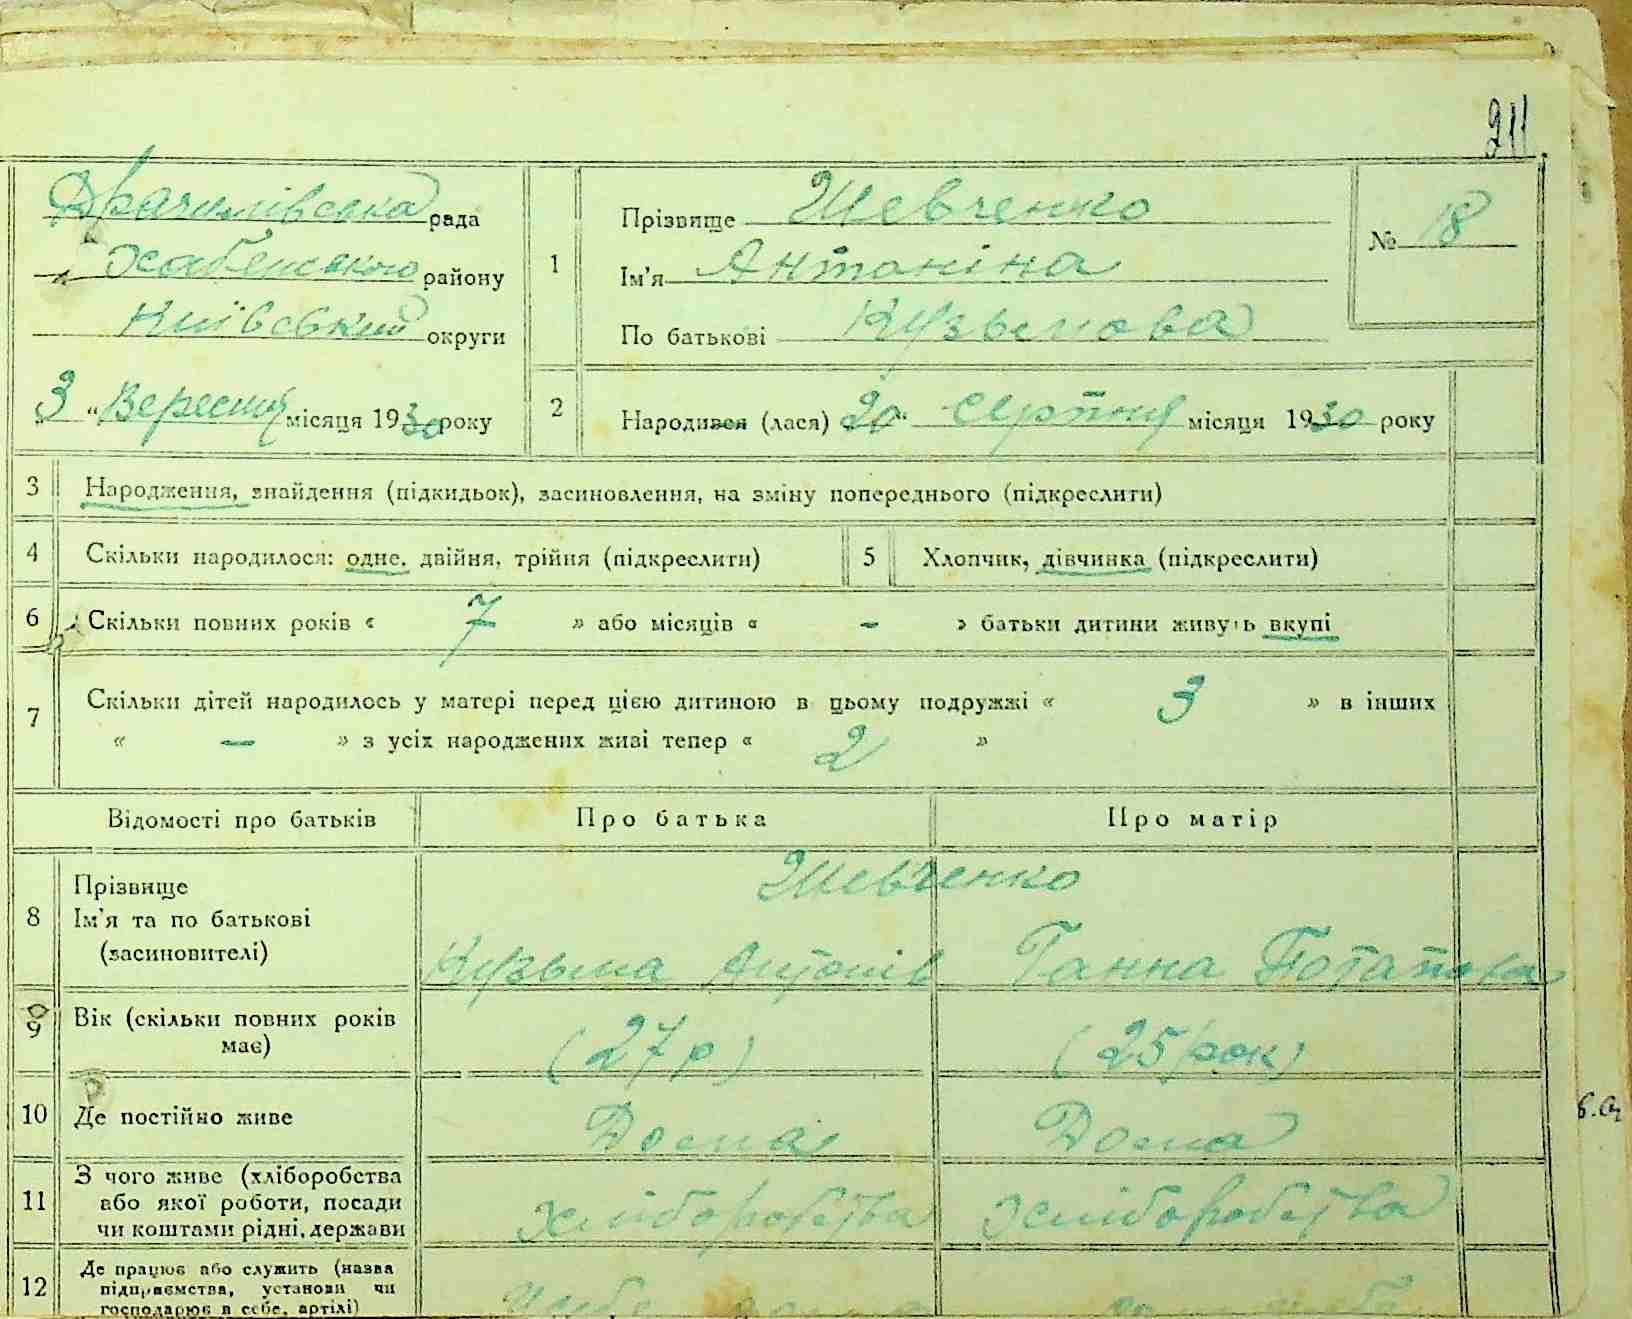 211
рада
Хабенського району
Київський округи
"3" Вересня місяця 1930 року
1
Прізвище Шевченко
Ім'я Антоніна
По батькові Кузьмова
№ 18
2
Народився (лася) 20 Серпня місяця 1930 року
3 Народження, знайдення (підкидьок), засиновлення, на зміну попереднього (підкреслити)
4 Скільки народилося: одне, двійня, трійня (підкреслити) 5 Хлопчик, дівчинка (підкреслити)
6 Скільки повних років « 7 » або місяців « - » батьки дитини живуть вкупі
7 Скільки дітей народилось у матері перед цією дитиною в цьому подружжі « 3 » в інших
« - » з усіх народжених живі тепер « 2 »
Відомості про батьків Про батька Про матір
8
Прізвище
Ім'я та по батькові
(засиновителі)
Шевченко
Кузьма Антонів Ганна Потапова
9
Вік (скільки повних років
має)
(27 р) (25 рок)
10 Де постійно живе Дома Дома
11
З чого живе (хліборобства
або якої роботи, посади
чи коштами рідні, держави
хліборобства хліборобства
12
Де працює або служить (назва
підприємства, установи чи
господарює в себе, артілі)